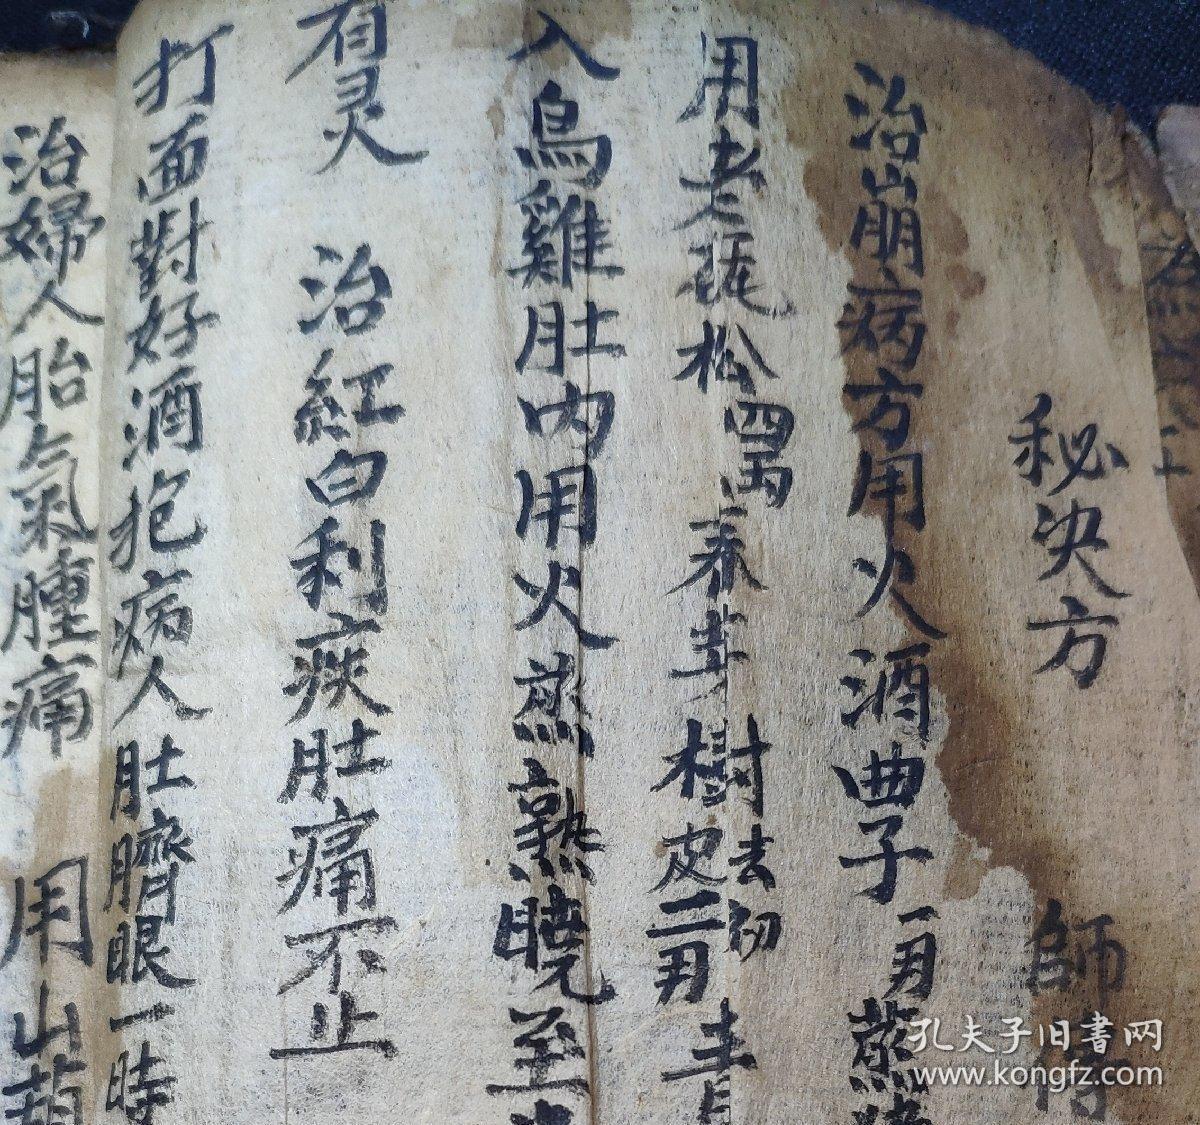 秘决方 師傳
治崩病方用火酒曲子一月蒸
用老 松四两 樹皮去初二月 青
入烏雞肚内用火蒸熟曉至
有灵 治紅白利疾肚痛不止
打面對好酒抱病人肚臍眼一時
治婦人胎氣腫痛 用山葫
孔夫子旧书网
www.kongfz.com